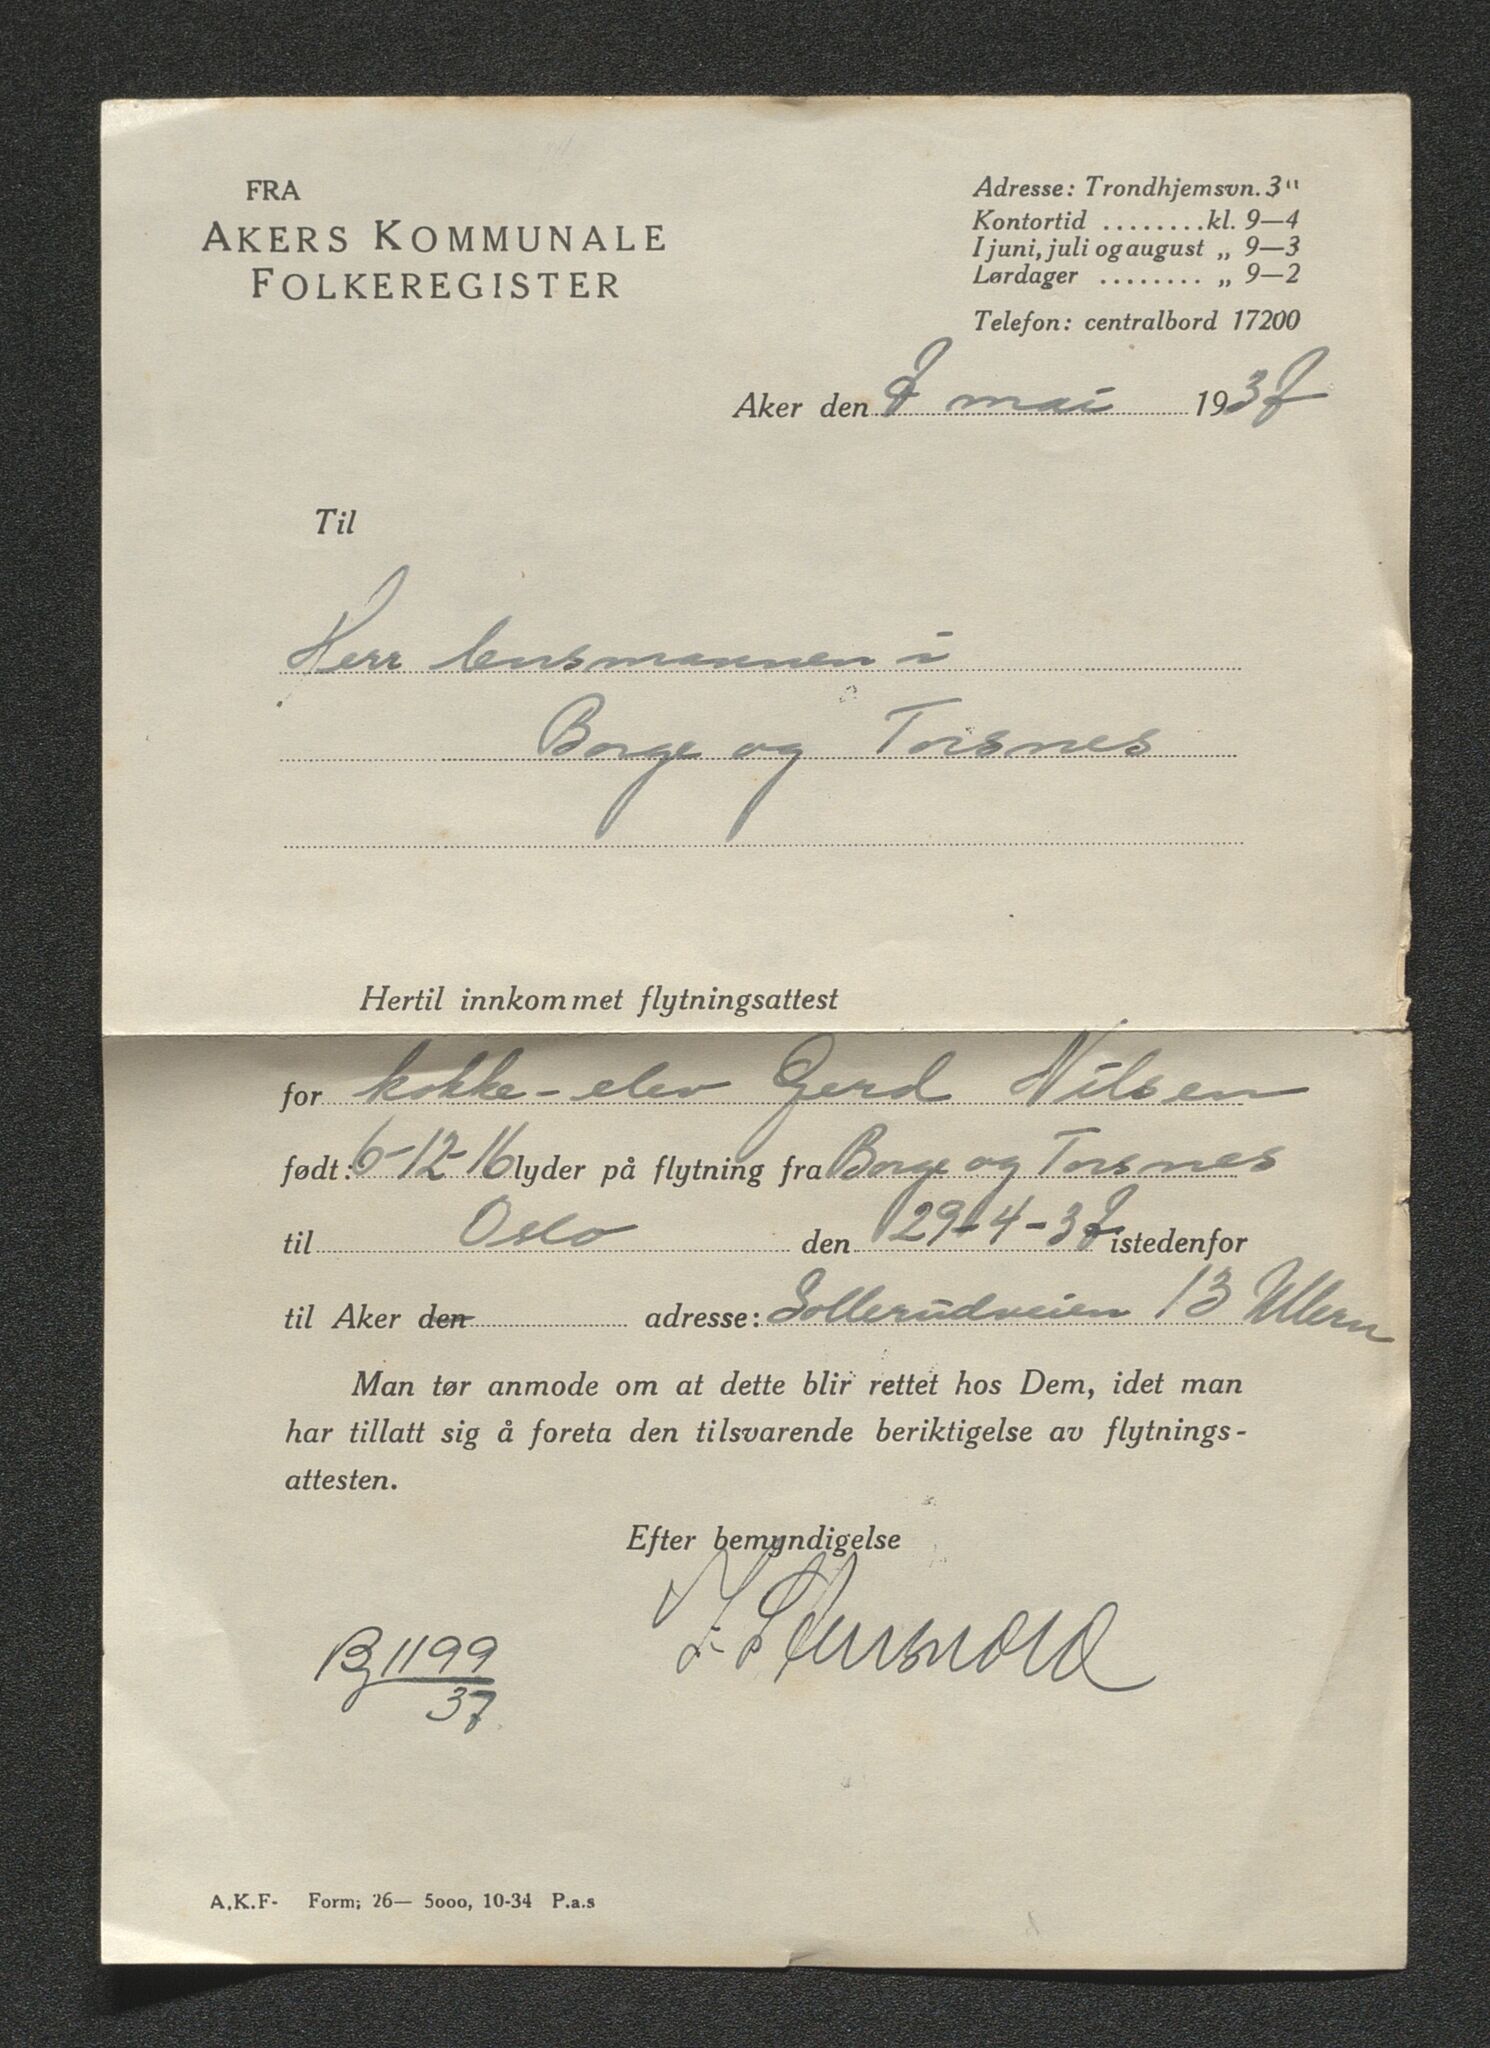 FRA
AKERS KOMMUNALE
FOLKEREGISTER
Adresse: Trondhjemsvn. 3"
Kontortid ........kl. 9—4
I juni, juli og august „ 9—3
Lørdager ........ „ 9—2
Telefon: centralbord 17200
Aker den 8 mai 1937
Til
Herr lensmannen i
Borge og Torsnes
Hertil innkommet flytningsattest
for kokke-elev Gerd Nilsen
født: 6-12-16 lyder på flytning fra Borge og Torsnes
til Oslo den 29-4-37 istedenfor
til Aker den adresse: Sollerudveien 13 Ullern
Man tør anmode om at dette blir rettet hos Dem, idet man
har tillatt sig å foreta den tilsvarende beriktigelse av flytnings-
attesten.
Efter bemyndigelse
1199
37
A.K.F- Form; 26— 5ooo, 10-34 P.a.s